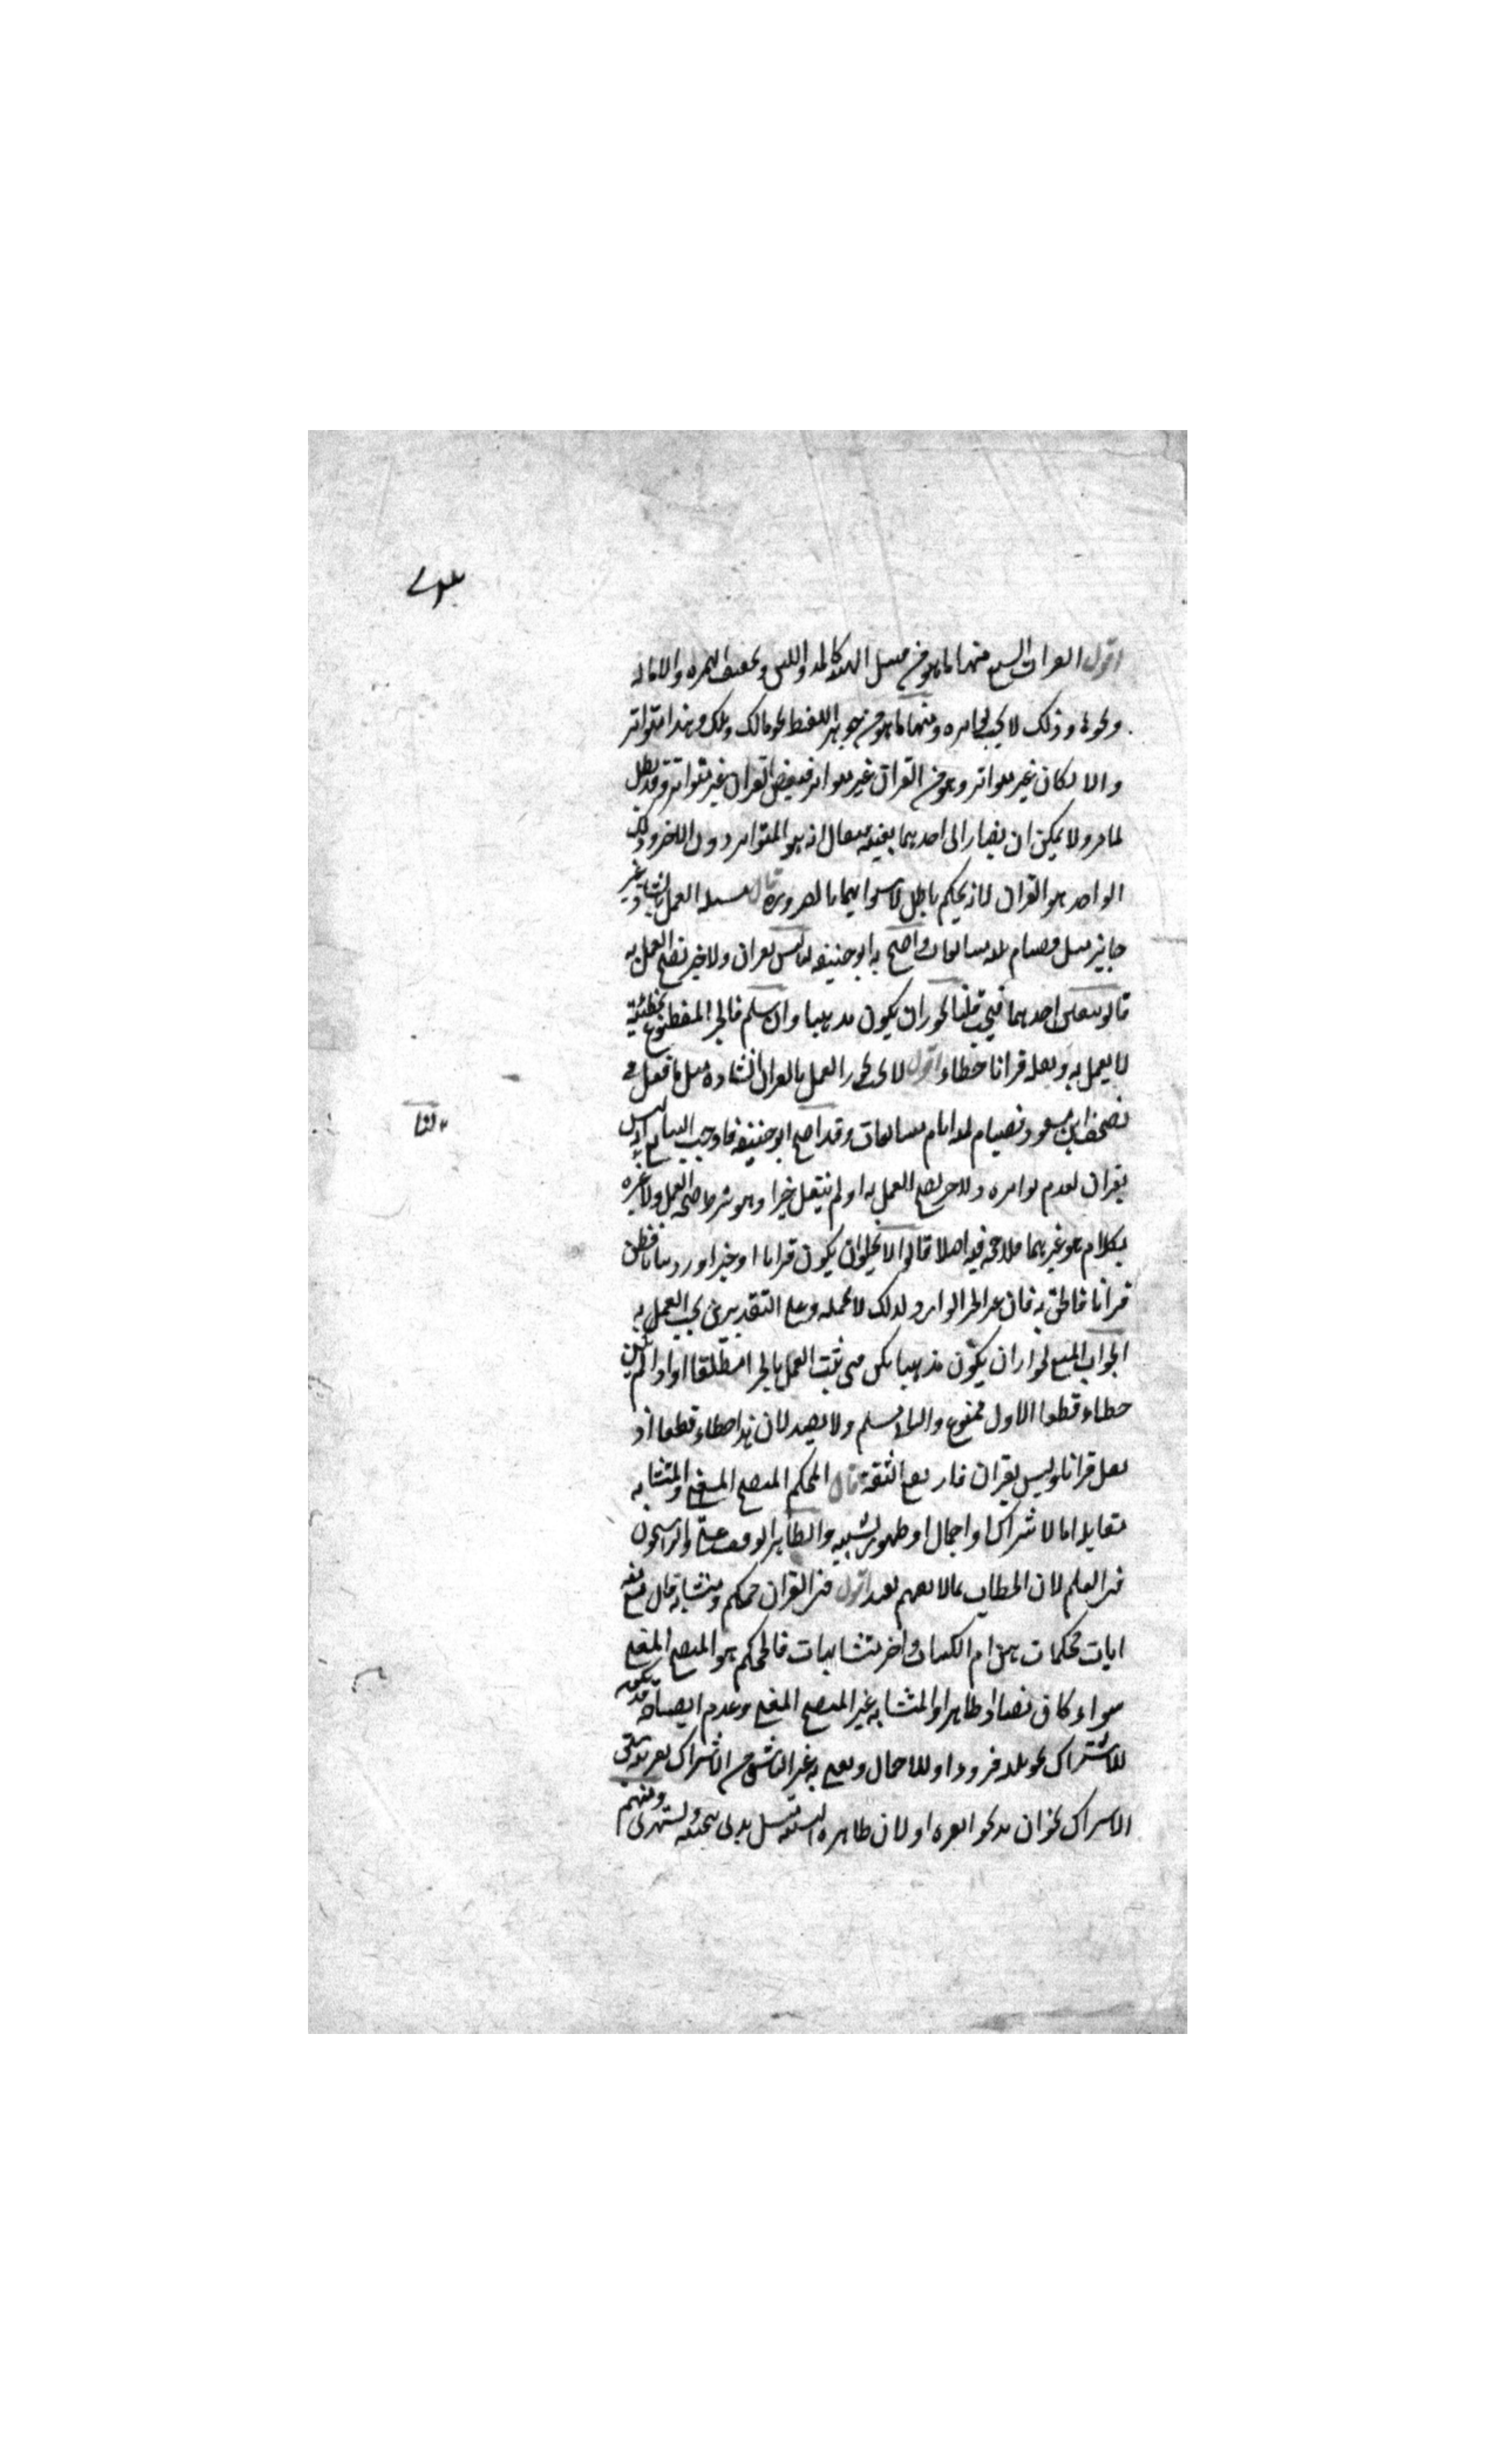 اقول القراات السبع منها ما هو من قبيل الهيئة كالمد واللين وتخفيف الهمزه والاماله
ونحوها وذلك لا يجب تواتره ومنها ما هو من جوهر اللفظ نحو مالك وملك وهذا متواتر
والا لكان غير متواتر وهو من القران غير متواتر فبعض القران غير متواتر وقد بطل
لما مر ولا يمكن ان يصار الى احدهما بعينه فيقال انه هو المتواتر دون الاخر وذلك
الواحد هو القران لانه تحكم باطل لاستوايهما بالضروره قال مسئله العمل بالشاذ غير
جايز مثل فصيام ثلثه متتابعات واحتج به ابو حنيفه لنا ليس بقران ولا خبر يصح العمل به
قالوا يتعين احدهما فيجب قلنا يجوز ان يكون مذهبا وان سلم فالخبر المقطوع بخطئيه
لا يعمل به ونقله قرانا خطاء اقول لا يجوز العمل بالقران الشاذه مثل ما نقل في
مصحف ابن مسعود فصيام ثلثه ايام متتابعات وقد احتج ابو حنيفه فاوجب التتابع لنا انه ليس
بقران لعدم تواتره ولا خبر يصح العمل به اذ لم ينقل خبرا وهو شرط صحة العمل ولا عبره
بكلام هو غيرهما فلا حجه فيه اصلا قالوا لا يخلو ان يكون قرانا او خبرا ورد بيانا فظن
قرانا فالحق به فان غير الخبر الوارد لذلك لا يحتمله وعلى التقديرين يجب العمل به
الجواب المنع لجواز ان يكون مذهبا لكن متى يجب العمل بالخبر امطلقا او اذا لم يكن
خطاء قطعا الاول ممنوع والثانى مسلم ولا يفيد لان هذا خطاء قطعا اذ
نقل قرانا وليس بقران فارتفع الثقة قال المحكم المتضح المعنى والمتشابه
مقابله اما لاشتراك او اجمال او ظهور تشبيه والظاهر الوقف على والراسخون
فى العلم لان الخطاب بما لا يفهم بعيد اقول فى القران محكم ومتشابه قال تعالى منه
ايات محكمات هن ام الكتاب واخر متشابهات فالمحكم هو المتضح المعنى
سواء كان نصا او ظاهرا والمتشابه غير المتضح المعنى وعدم ايضاحه قد يكون
للاشتراك نحو ثلثه قروء او للاجمال ونعنى به غير الناشى من الاشتراك بقرينة سبق
الاشتراك نحو ان تذبحوا بقره او لان ظاهره التشبيه مثل بيدى بيمينه ويستهزى ومنهم